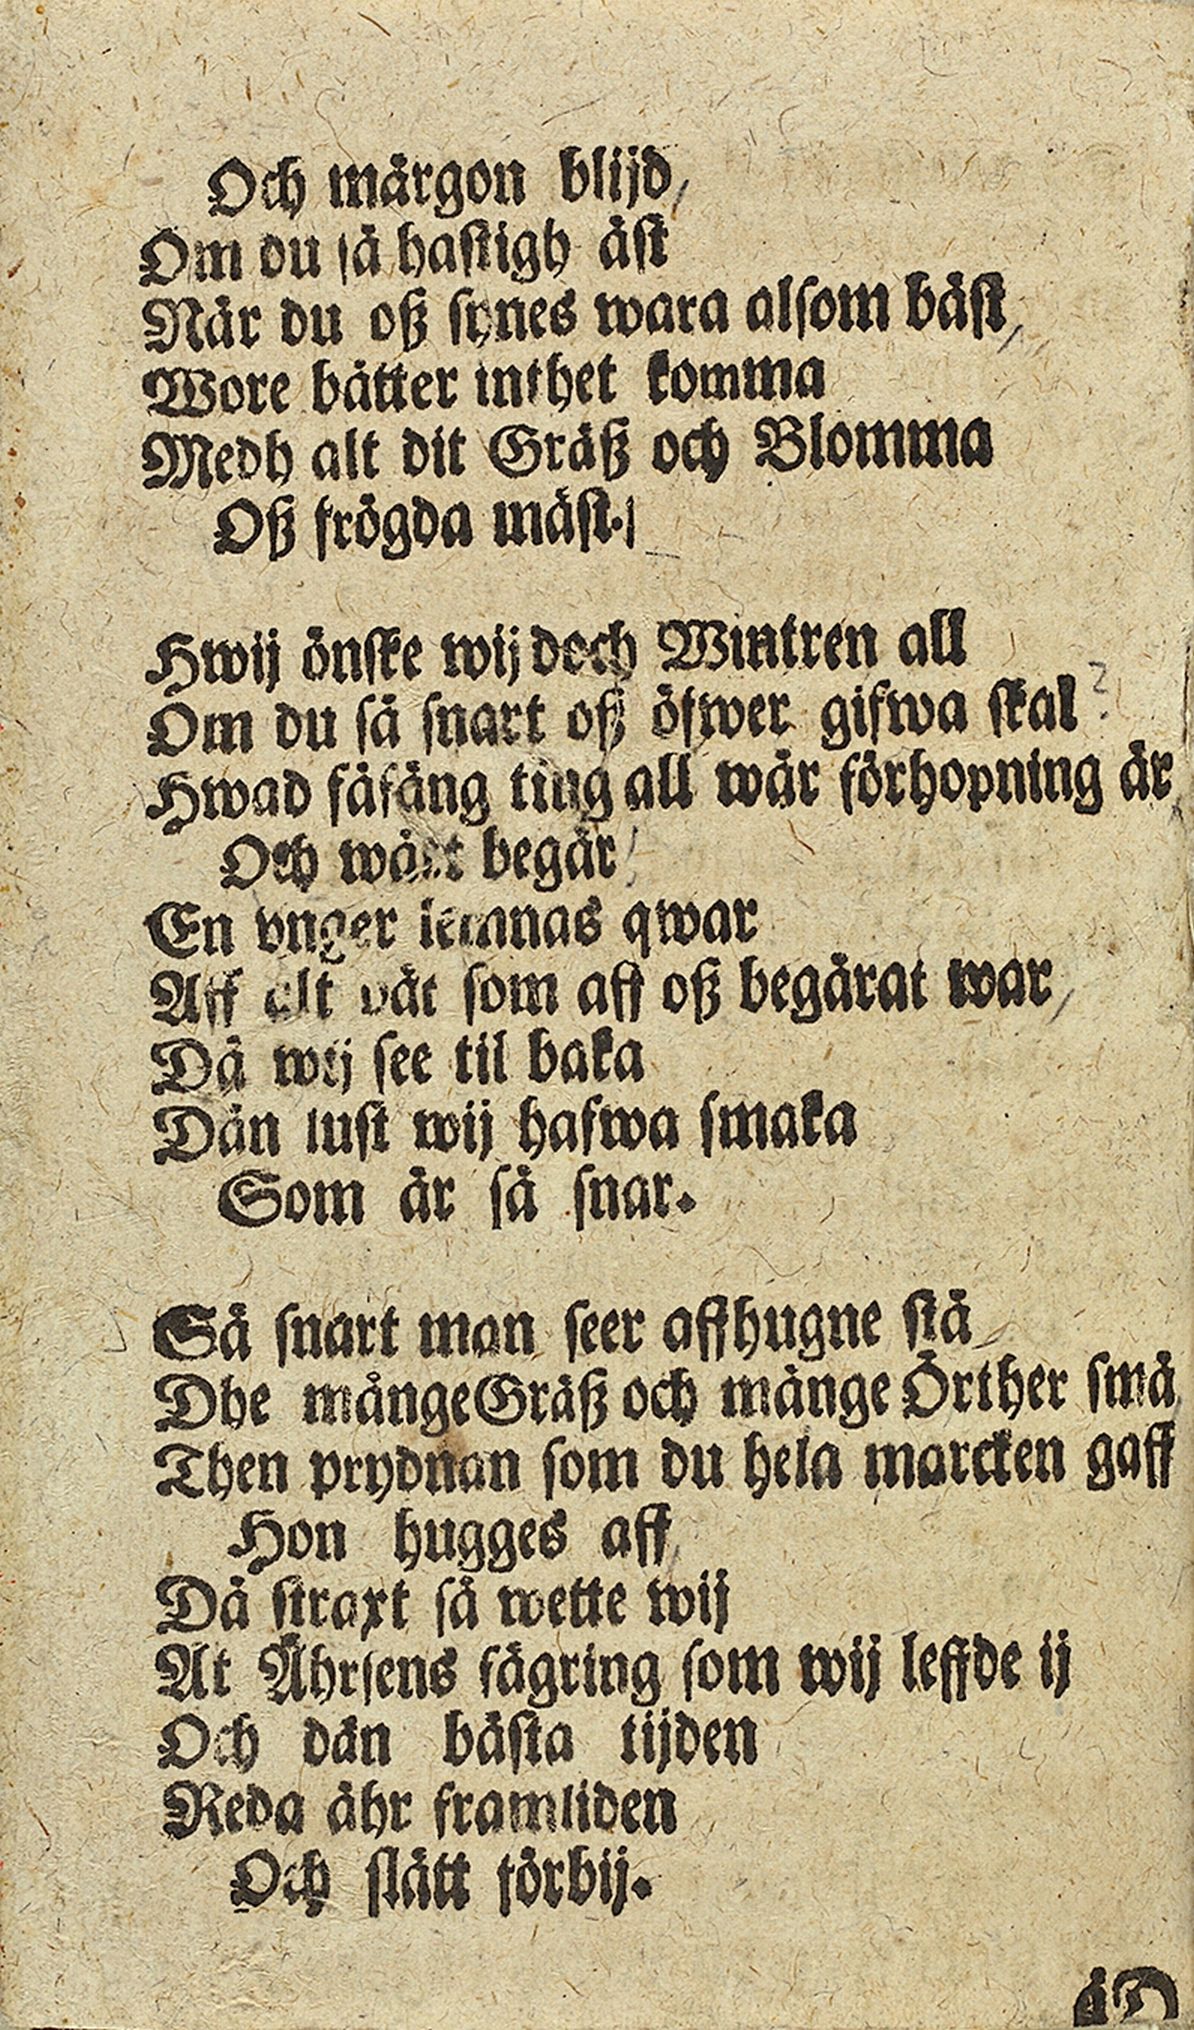 Och mårgon blijd/
Om du så hastigh äst
När du oß synes wara alsom bäst/
Wore bätter inthet komma
Medh alt dit Gräß och Blomma
Oß frögda mäst.
Hwij önske wij doch Wintren all
Om du så snart oß öfwer gifwa skal?
Hwad fåfäng ting all wår förhopning är
Och wårt begär/
En vnger lemnas qwar
Aff alt dät som aff oß begärat war/
Då wij see til baka
Dän lust wij hafwa smaka
Som är så snar.
Så snart man seer affhugne stå
Dhe månge Gräß och månge Örther små
Then prydnan som du hela marcken gaff
Hon hugges aff/
Då straxt så wette wij
At Åhrsens fägring som wij leffde ij
Och dän bästa tijden
Reda ähr framliden
Och slätt förbij.